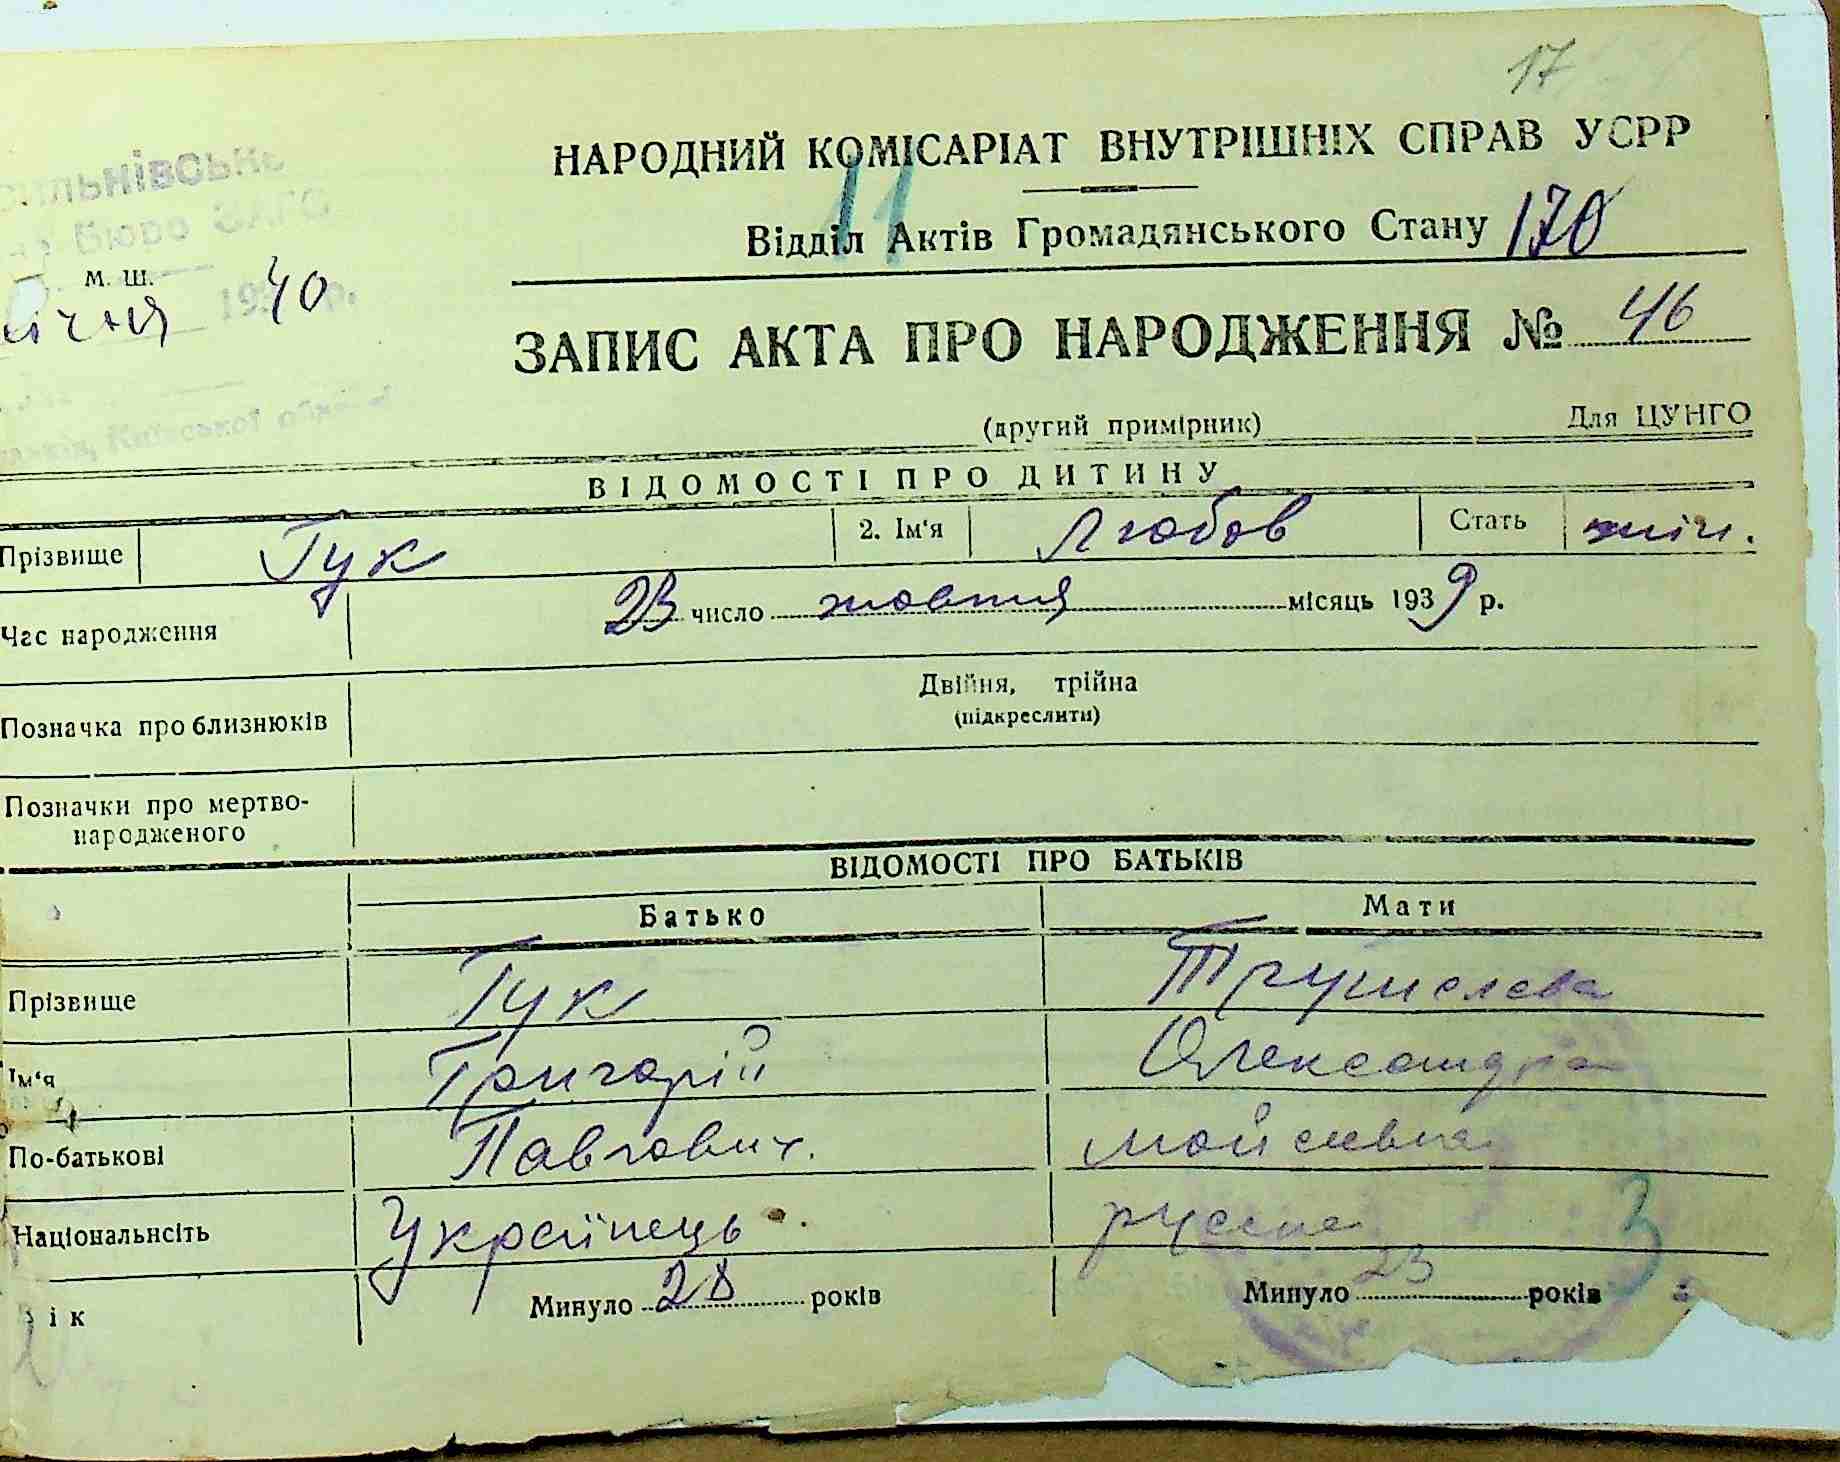 17
НАРОДНИЙ КОМІСАРІАТ ВНУТРІШНІХ СПРАВ УСРР
11
Відділ Актів Громадянського Стану 170
Бюро ЗАГС
М. Ш.
січня 1940 р.
Київської
ЗАПИС АКТА ПРО НАРОДЖЕННЯ № 46
(другий примірник) Для ЦУНГО
ВІДОМОСТІ ПРО ДИТИНУ
Прізвище Гук 2. Ім'я Любов Стать жін.
Час народження 23 число жовтня місяць 1939 р.
Позначка про близнюків Двійня, трійна
(підкреслити)
Позначки про мертво-
народженого
ВІДОМОСТІ ПРО БАТЬКІВ
Батько Мати
Прізвище Гук
Ім'я Григорій Олександра
По-батькові Павлович. Мойсеївна
Національність Українець руська
3
Вік Минуло 28 років Минуло 23 років